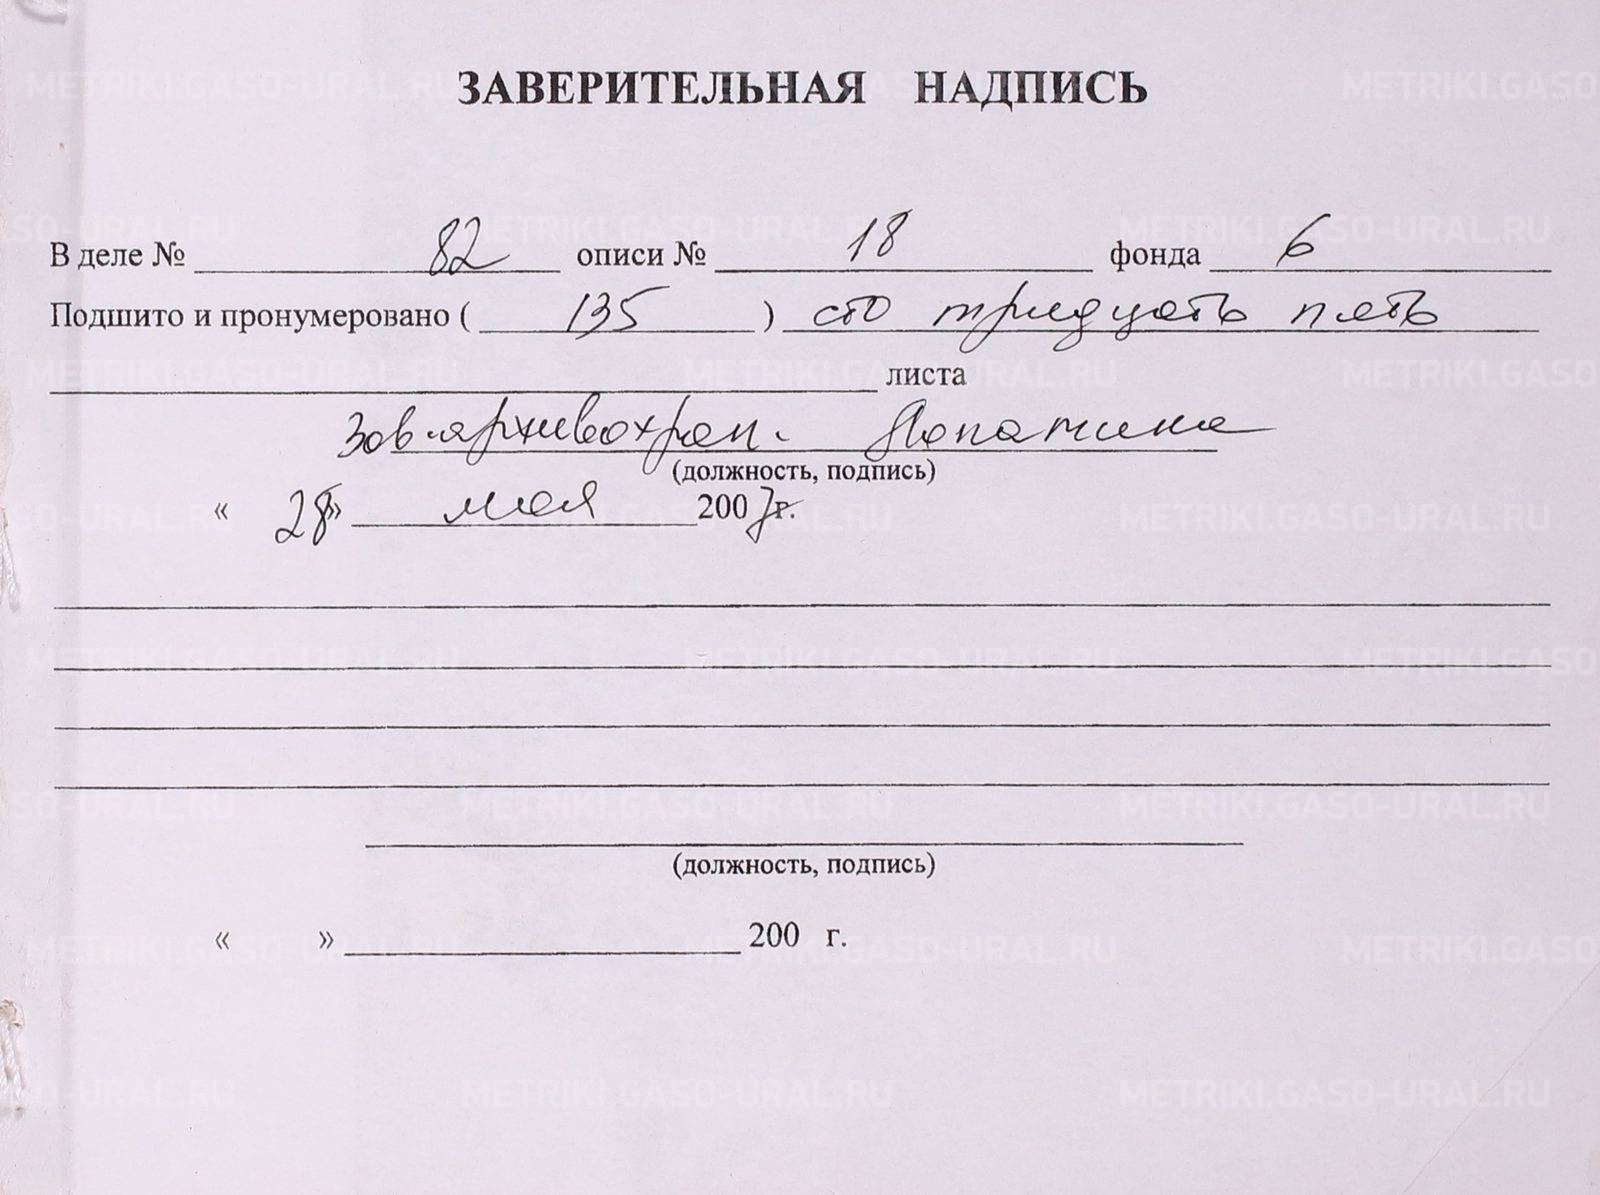 ЗАВЕРИТЕЛЬНАЯ НАДПИСЬ
В деле № 82 описи № 18 фонда 6
Подшито и пронумеровано ( 135 ) сто тридцать пять
листа
Зав. архивохран. Лопатина
(должность, подпись)
« 28» мая 2007г.
(должность, подпись)
« » 200 г.
METRIKI.GASO-URAL.RU